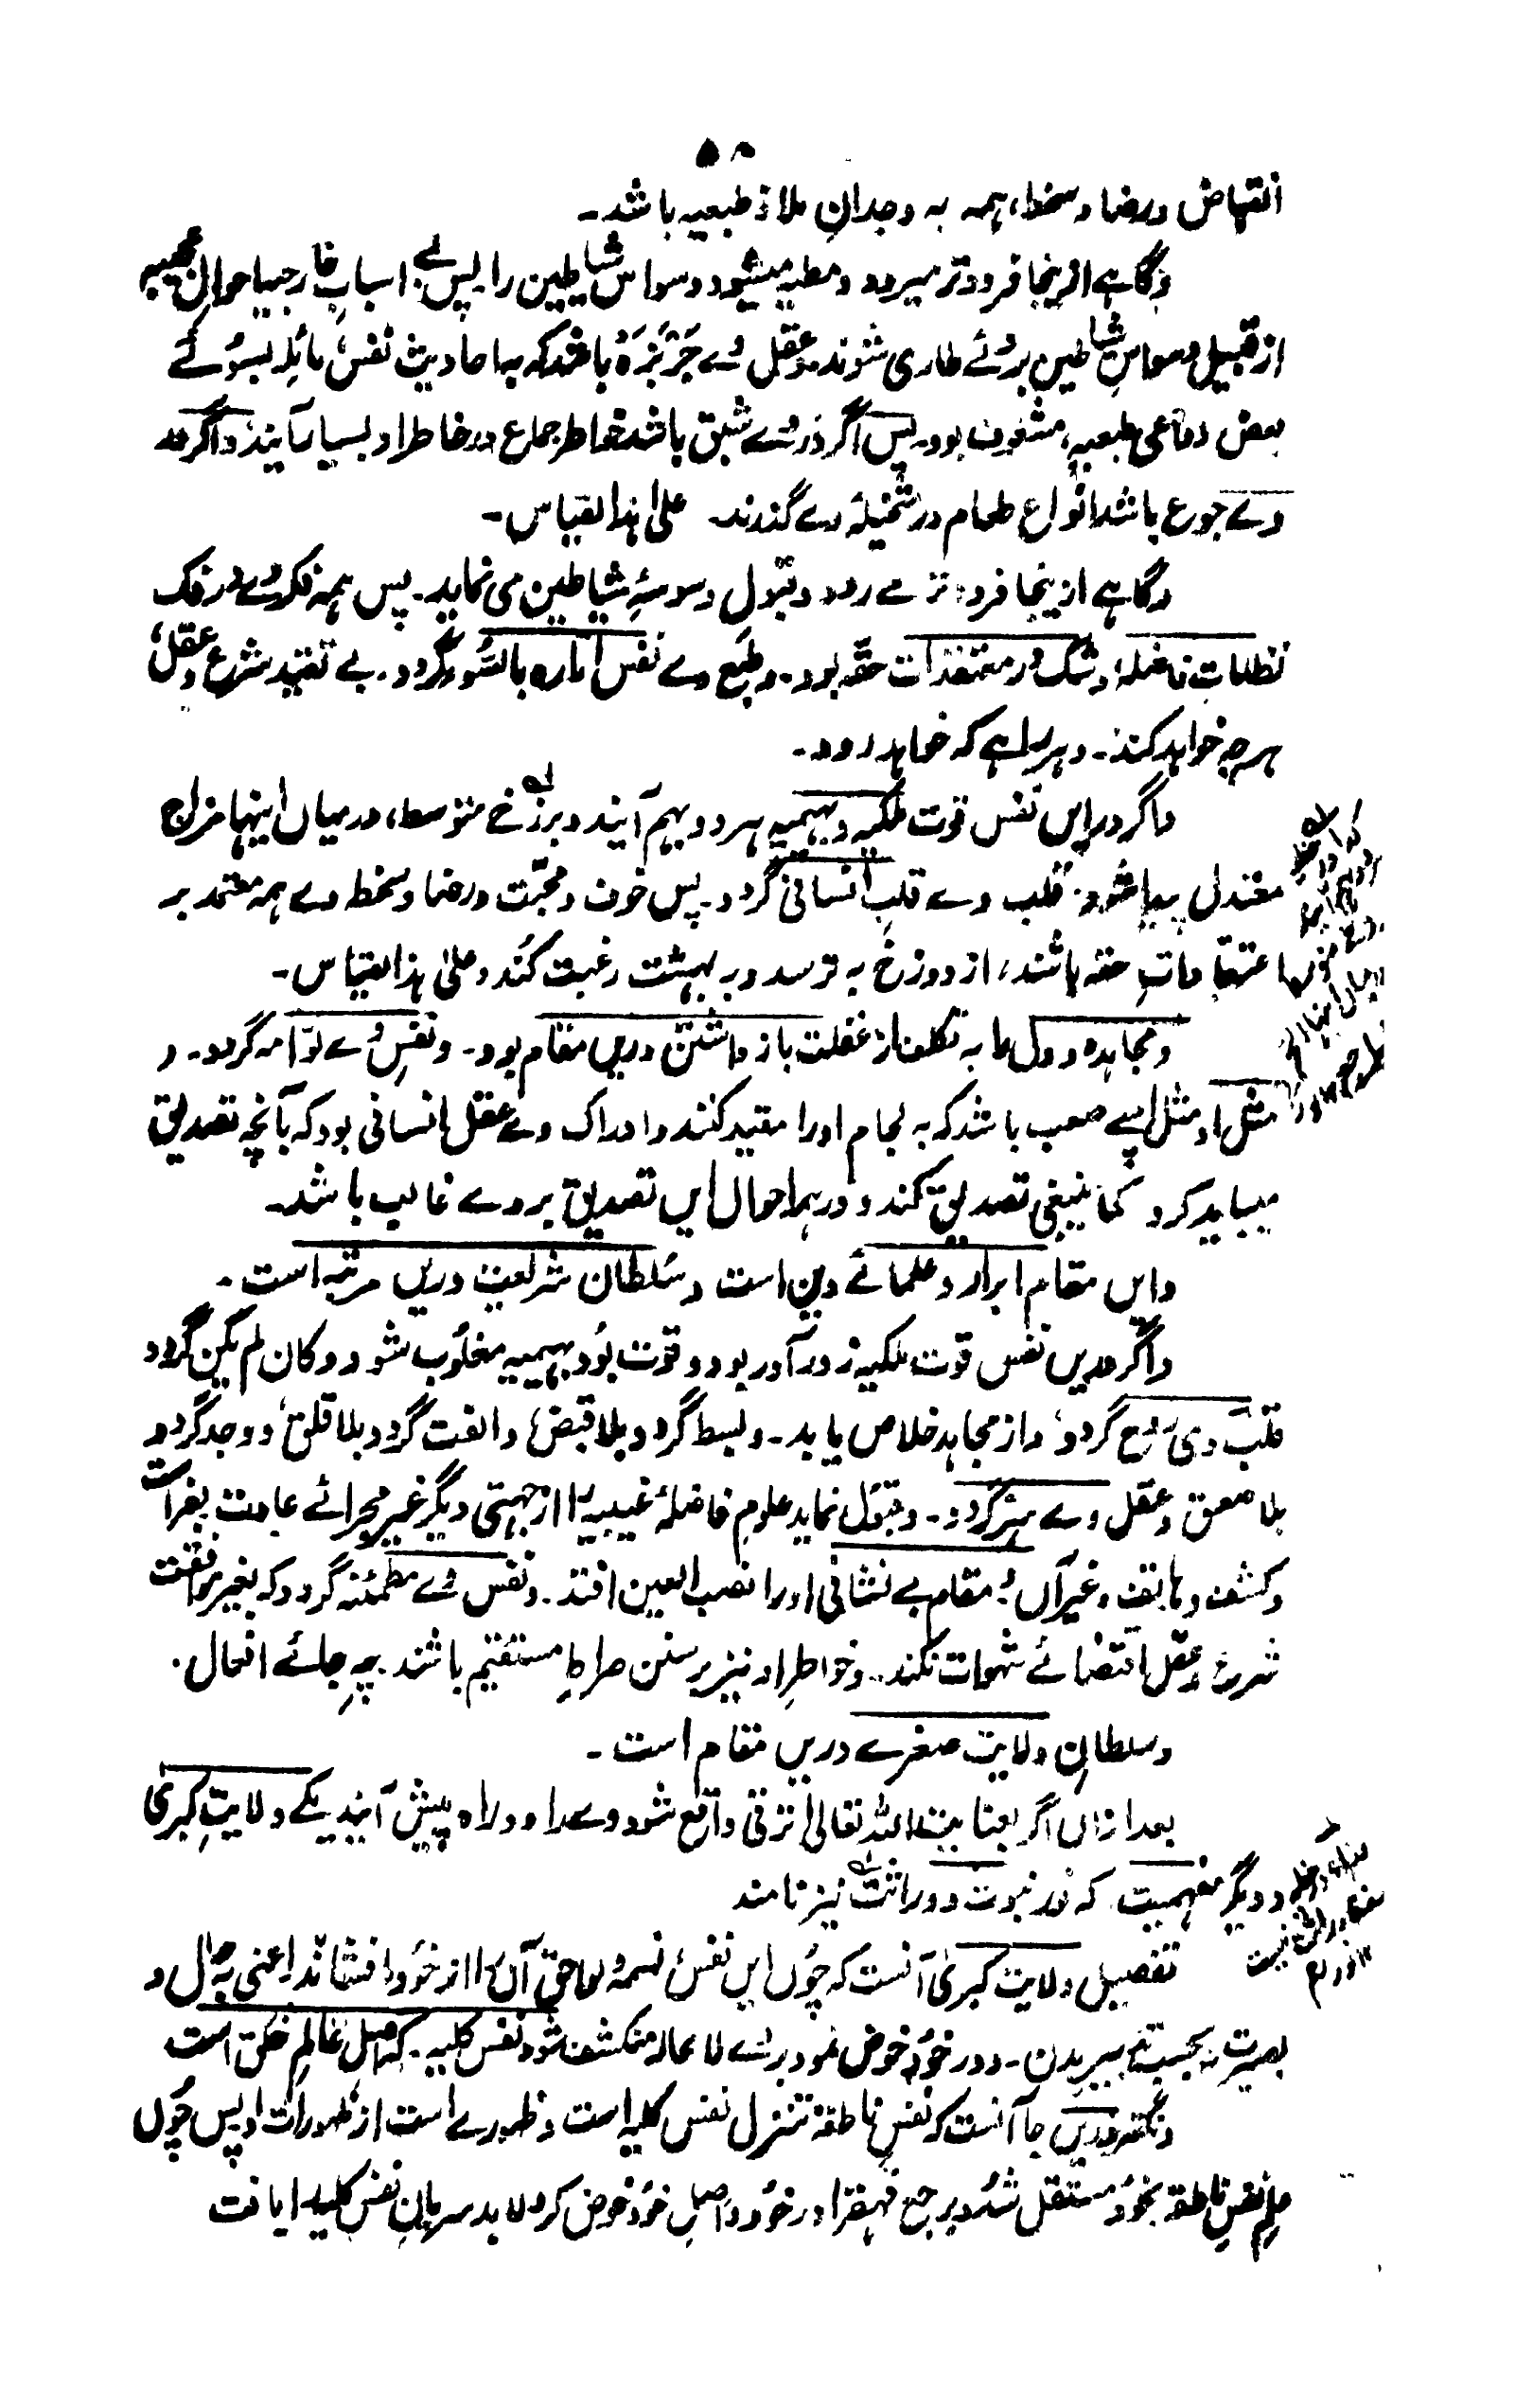 ۵۸
انقباض و رضا و سخط، ہمہ بہ وجدانِ ملاذ طبعیہ باشد۔
وگاہے ازینجا فرود تر میرود و مطیہ میشود وسواس شیاطین را۔ پس بے اسبابِ خارجیہ احوالِ عجیبہ
از قبیل وسواسِ شیاطین بروئے طاری شوند۔ وعقل وے جَرْبَزَہ باشد کہ بہ احادیث نفس مائلہ بسوئے
بعض دواعی طبعیہ، مشغوف بود۔ پس اگر در وے شبق باشد خواطر جماع در خاطر او بسیار آیند و اگر در
وے جوع باشد انواع طعام در متخیلۂ وے گذرند۔ علیٰ ہذا القیاس۔
وگاہے ازینجا فرود تر مے رود و قبول وسوسۂ شیاطین می نماید۔ پس ہمہ فکر وے در فک
نظامات فاضلہ، و شک در معتقدات حقہ بود۔ و طبع وے نفس امارہ بالسُّوء گردد۔ بے تقید شرع و عقل
ہرچہ خواہد کند۔ و بہر راہے کہ خواہد رود۔
واگر در این نفس قوت ملکیہ و بہیمیہ ہر دو بہم آیند و برزخے متوسط، درمیان اینہا مزاج
معتدل پیدا شود۔ قلب وے قلبِ انسانی گردد۔ پس خوف و محبّت و رضا و سخط وے ہمہ معتمد بر
اعتقاداتِ حقہ باشند، از دوزخ بہ ترسد و بہ بہشت رغبت کُند و علیٰ ہذا القیاس۔
و مجاہدہ و دل را بہ تکلف از غفلت باز داشتن دریں مقام بود۔ و نفسِ وے لوّامہ گردد۔ و
مثل او مثل اسپے صعب باشد کہ بہ لجام او را مقید کنند و ادراک وے عقل انسانی بود کہ بآنچہ تصدیق
میباید کرد کما ینبغی تصدیق کند و در ہمہ احوال ایں تصدیق بر وے غالب باشد۔
و ایں مقام ابرار و علمائے دین است و سُلطان شریعت دریں مرتبہ است۔
و اگر دریں نفس قوت ملکیہ زور آور بود و قوت بُود بہیمیہ مغلُوب شود و کان لم یکن گردد
قلب وی روح گردد، و از مجاہدہ خلاص یابد۔ و بسط گردد بلا قبض، و الفت گردد بلا قلق، و وجد گردد
بلا صعق و عقل وے سِرّ گردد۔ و قبول نماید علوم فاضلۂ غیبیہ را از جہتی دیگر غیر مجرائے عادت بفراست
و کشف و ہاتف و غیر آں، و مقام بے نشانی او را نصب العین افتد۔ و نفس وے مطمئنہ گردد کہ بغیر موافقت
شرع و عقل اقتضائے شہوات نکند۔ و خواطر او نیز بر سنن صراطِ مستقیم باشند۔ چہ جائے افعال۔
و سلطانِ ولایت صغرے دریں مقام است۔
بعد ازاں اگر بعنایت اللہ تعالیٰ ترقی واقع شود وے را دو راہ پیش آیند یکے ولایتِ کبریٰ
و دیگر مفہمیت کہ نُورِ نبوت و وراثت نیز نامند
تفصیل ولایت کبریٰ آنست کہ چُوں ایں نفس نسمہ و لواحق آں را از خود افشاند اعنی بہ حال و
بصیرت نہ بحسب تدبیر بدن۔ و در خود خوض نمود بر وے لا محالہ منکشف شود نفس کلیہ۔ کہ اصل عالمِ خلق است
و نکتہ دریں جا آنست کہ نفسِ ناطقہ تنزل نفس کلیہ است و ظہورے است از ظہورات او پس چُوں
علم نفسِ ناطقہ بخود مستقل شد و برجع قہقرا در خود و اصلِ خود خوض کرد لا بد سریانِ نفس کلیہ را یافت